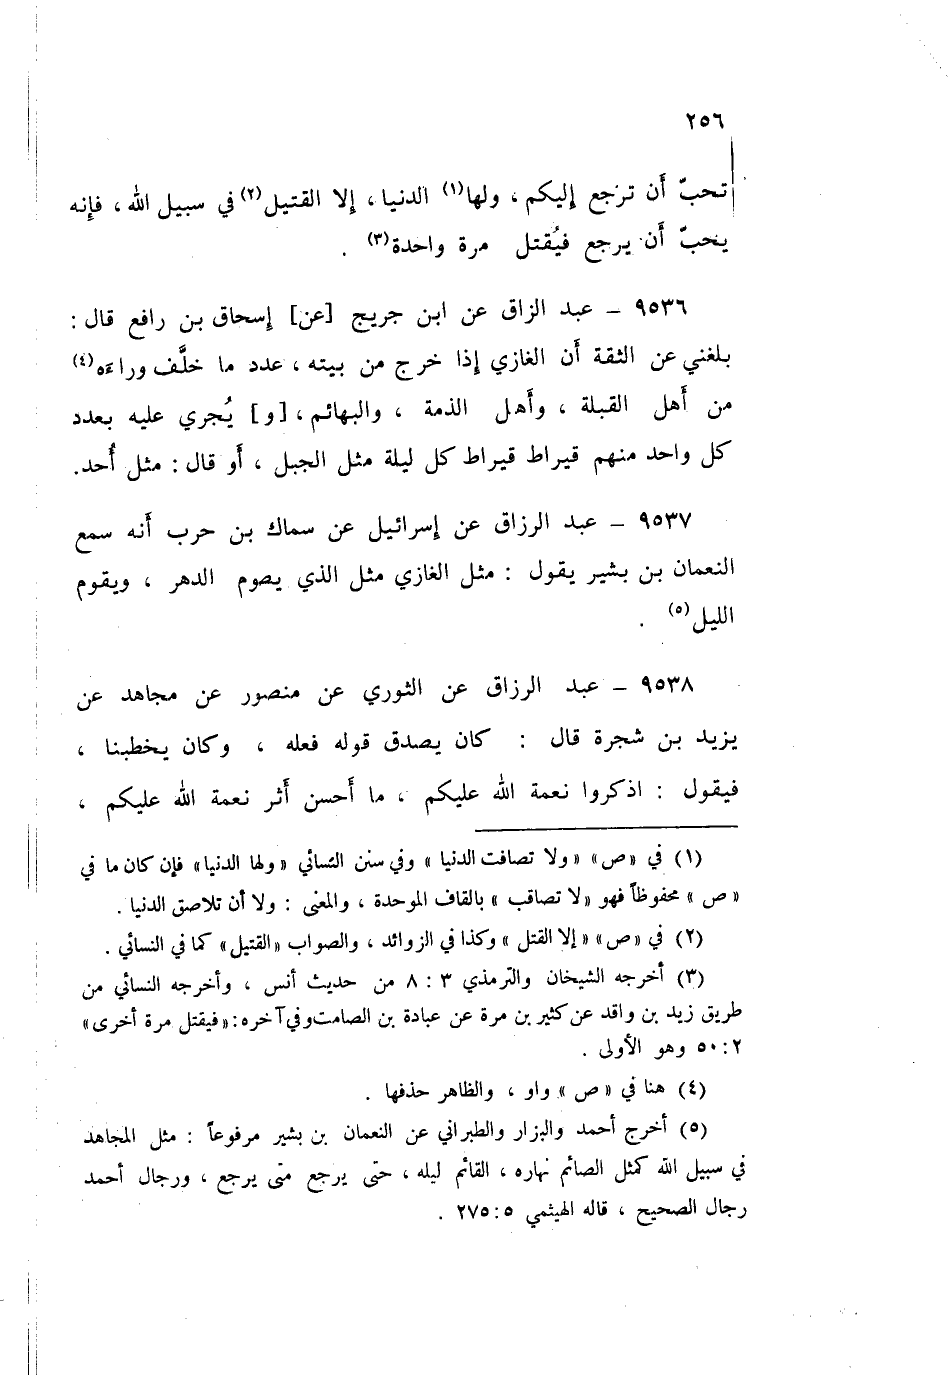 ٢٥٦
تحبّ أن ترجع إليكم ، ولها(١) الدنيا ، إلا القتيل(٢) في سبيل الله ، فإنه
يحبّ أن يرجع فيُقتل مرة واحدة(٣) .
٩٥٣٦ – عبد الزاق عن ابن جريج [عن] إسحاق بن رافع قال :
بلغني عن الثقة أن الغازي إذا خرج من بيته ، عدد ما خلَّف وراءه(٤)
من أهل القبلة ، وأهل الذمة ، والبهائم ، [و] يُجري عليه بعدد
كل واحد منهم قيراط قيراط كل ليلة مثل الجبل ، أو قال : مثل أُحد.
٩٥٣٧ – عبد الرزاق عن إسرائيل عن سماك بن حرب أنه سمع
النعمان بن بشير يقول : مثل الغازي مثل الذي يصوم الدهر ، ويقوم
الليل(٥) .
٩٥٣٨ – عبد الرزاق عن الثوري عن منصور عن مجاهد عن
يزيد بن شجرة قال : كان يصدق قوله فعله ، وكان يخطبنا ،
فيقول : اذكروا نعمة الله عليكم ، ما أحسن أثر نعمة الله عليكم ،
(١) في «ص» «ولا تصافت الدنيا» وفي سنن النسائي «ولها الدنيا» فإن كان ما في
«ص» محفوظاً فهو «لا تصاقب» بالقاف الموحدة ، والمعنى : ولا أن تلاصق الدنيا .
(٢) في «ص» «إلا القتل» وكذا في الزوائد ، والصواب «القتيل» كما في النسائي .
(٣) أخرجه الشيخان والترمذي ٣ : ٨ من حديث أنس ، وأخرجه النسائي من
طريق زيد بن واقد عن كثير بن مرة عن عبادة بن الصامت وفي آخره : «فيقتل مرة أخرى»
٢ : ٥٠ وهو الأولى .
(٤) هنا في «ص» واو ، والظاهر حذفها .
(٥) أخرج أحمد والبزار والطبراني عن النعمان بن بشير مرفوعاً : مثل المجاهد
في سبيل الله كمثل الصائم نهاره ، القائم ليله ، حتى يرجع متى يرجع ، ورجال أحمد
رجال الصحيح ، قاله الهيثمي ٥ : ٢٧٥ .